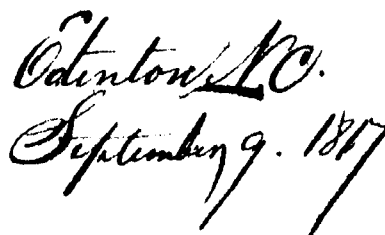 Edenton, N.C.
September 9. 1867